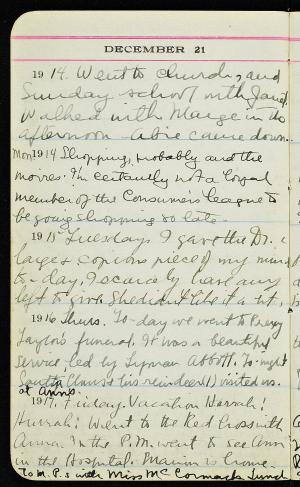 DECEMBER 21
1914. Went to church, and
Sunday school with Janet.
Walked with Marge in the
afternoon. Abie came down.
Mon 1914 Shopping, probably and the
movies. I'm certainly not a loyal
member of the Consumer's League to
be going shopping so late.
1915 Tuesday. I gave the Dr. a
large & copious piece of my mind
to-day. I scarcely have any
left to give. She didn't like it a bit.
1916 Thurs. To-day we went to
Taylor's funeral. It was a beautiful
service led by Lyman Abbott. To-night
Santa Claus (& his reindeer!) visited us.
at Ann's.
1917. Friday. Vacation Hurrah!
Hurrah! Went to the Red Cross with
Anna. In the P.M. went to see Ann
in the Hospital. Marion is home.
To M. P.s with Miss McCormack's